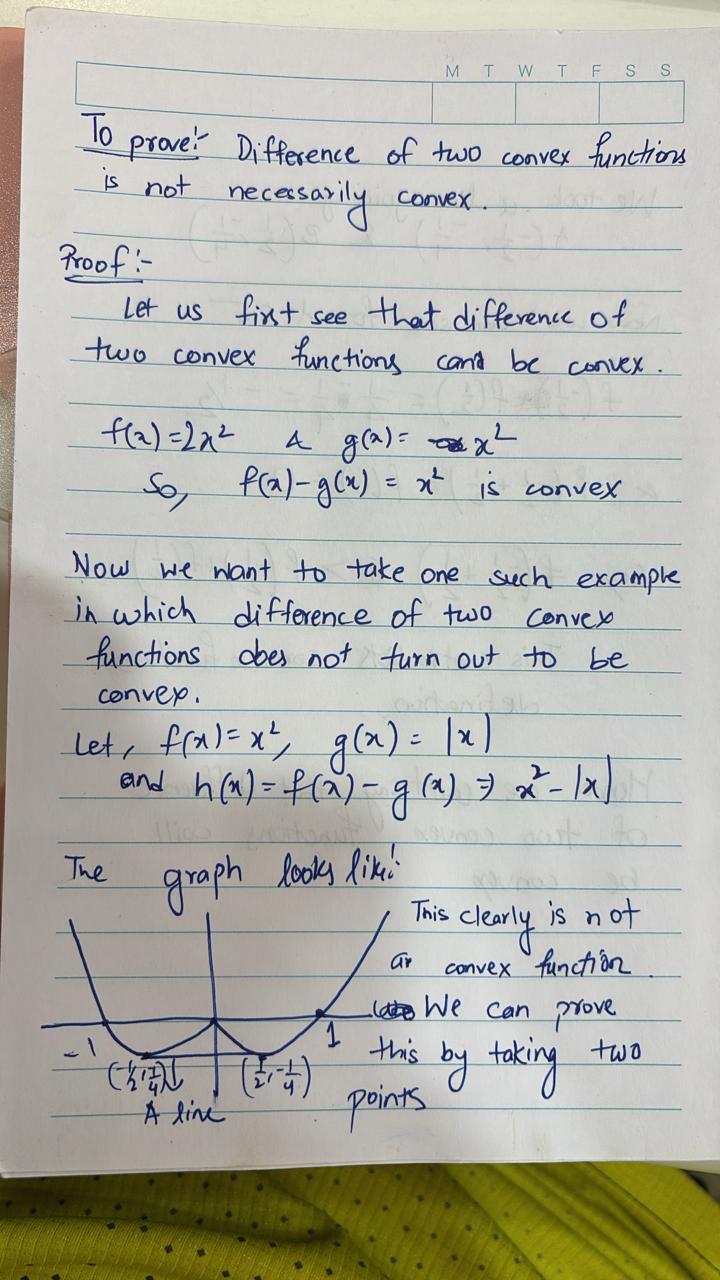 M T W T F S S
To prove:- Difference of two convex functions
is not necessarily convex.
Proof:-
Let us first see that difference of
two convex functions can be convex.
f(x)=2x² & g(x)= x²
So, f(x)-g(x) = x² is convex
Now we want to take one such example
in which difference of two convex
functions does not turn out to be
convex.
Let, f(x)=x², g(x) = |x|
and h(x)=f(x)-g(x) ⇒ x²-|x|
The graph looks like:
This clearly is not
a convex function.
We can prove
this by taking two
points
-1
1
(-1/2, -1/4)
(1/2, -1/4)
A line